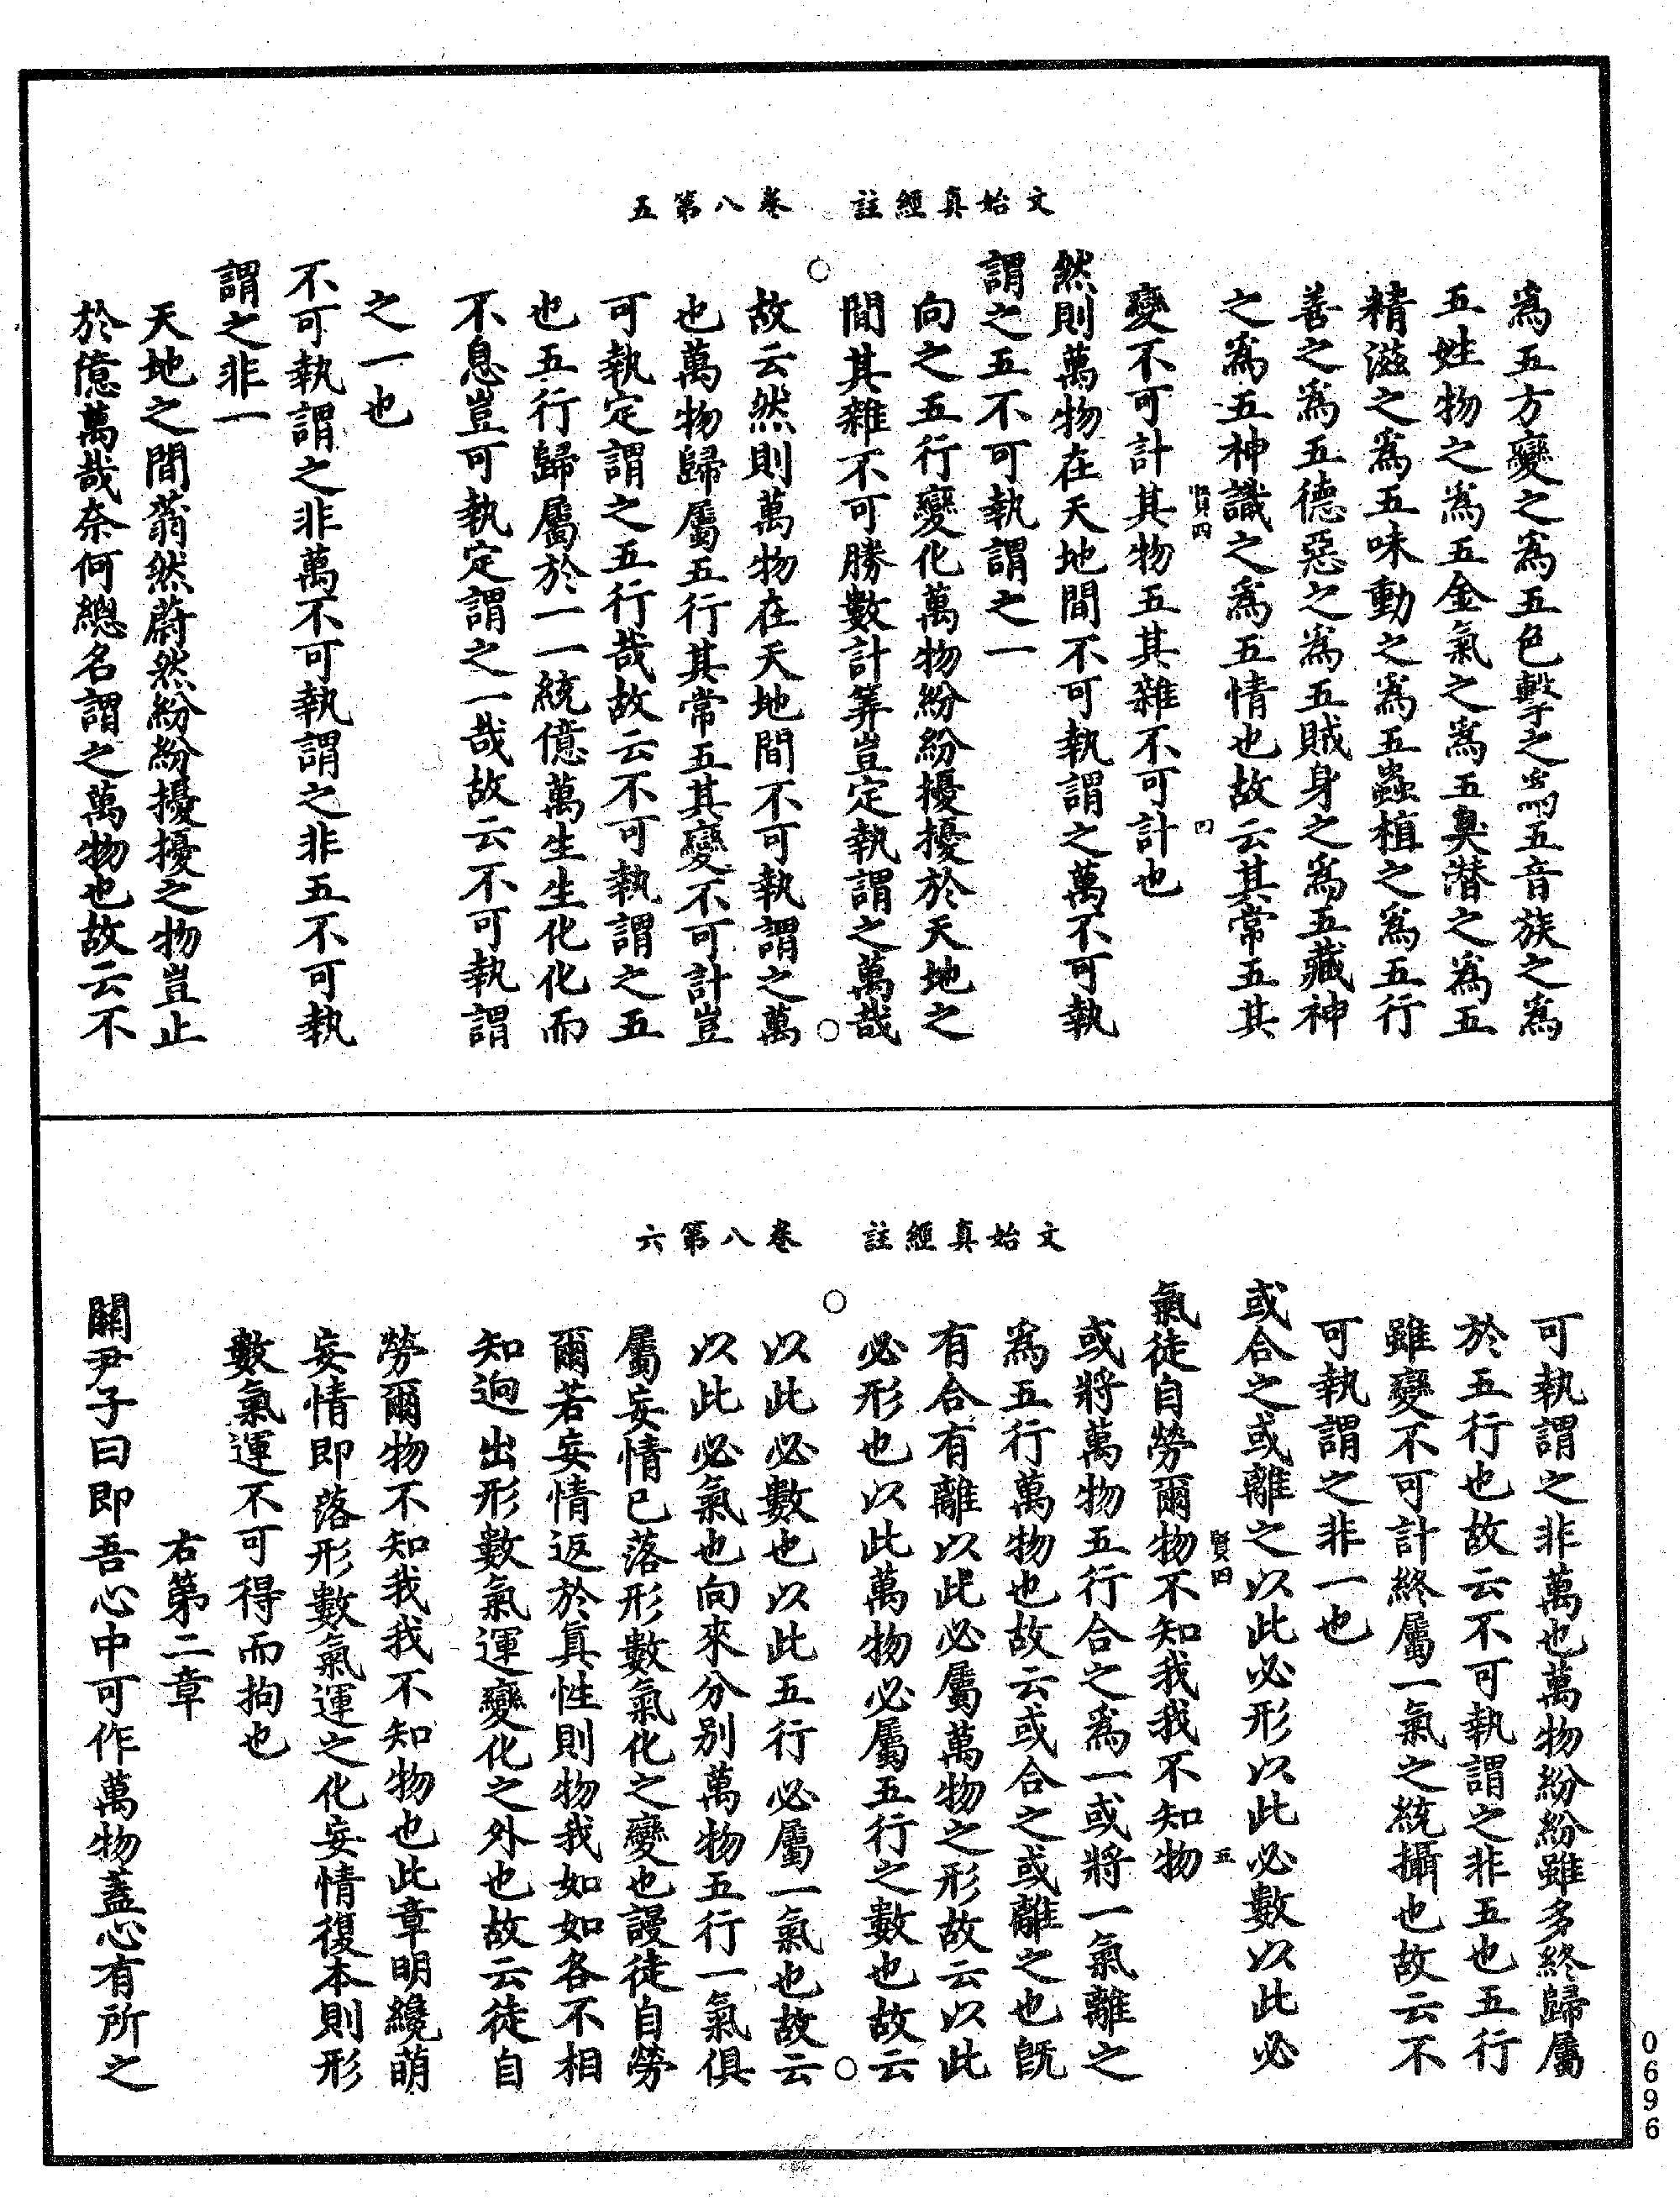 文始真經註　卷八第五
為五方變之為五色擊之為五音族之為
五姓物之為五金氣之為五臭潜之為五
精滋之為五味動之為五蟲植之為五行
善之為五德惡之為五賊身之為五藏神
之為五神識之為五情也故云其常五其
賢四　四
變不可計其物五其雜不可計也
然則萬物在天地間不可執謂之萬不可執
謂之五不可執謂之一
向之五行變化萬物紛紛擾擾於天地之
間其雜不可勝數計筭豈定執謂之萬哉
故云然則萬物在天地間不可執謂之萬
也萬物歸屬五行其常五其變不可計豈
可執定謂之五行哉故云不可執謂之五
也五行歸屬於一一統億萬生生化化而
不息豈可執定謂之一哉故云不可執謂
之一也
不可執謂之非萬不可執謂之非五不可執
謂之非一
天地之間蓊然蔚然紛紛擾擾之物豈止
於億萬哉奈何總名謂之萬物也故云不
文始真經註　卷八第六
可執謂之非萬也萬物紛紛雖多終歸屬
於五行也故云不可執謂之非五也五行
雖變不可計終屬一氣之統攝也故云不
可執謂之非一也
或合之或離之以此必形以此必數以此必
賢四　五
氣徒自勞爾物不知我我不知物
或將萬物五行合之為一或將一氣離之
為五行萬物也故云或合之或離之也既
有合有離以此必屬萬物之形故云以此
必形也以此萬物必屬五行之數也故云
以此必數也以此五行必屬一氣也故云
以此必氣也向來分别萬物五行一氣俱
屬妄情已落形數氣化之變也謾徒自勞
爾若妄情返於真性則物我如如各不相
知逈出形數氣運變化之外也故云徒自
勞爾物不知我我不知物也此章明纔萌
妄情即落形數氣運之化妄情復本則形
數氣運不可得而拘也
右第二章
關尹子曰即吾心中可作萬物蓋心有所之
0696